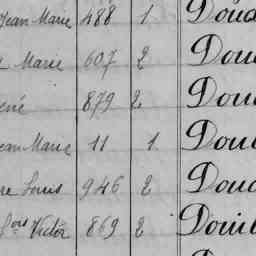 Jean Marie 488 1 Doua
Marie 607 2 Dou
ené 879 2 Dou
ean Marie 11 1 Doub
re Louis 946 2 Douc
fois Victor 869 2 Douil